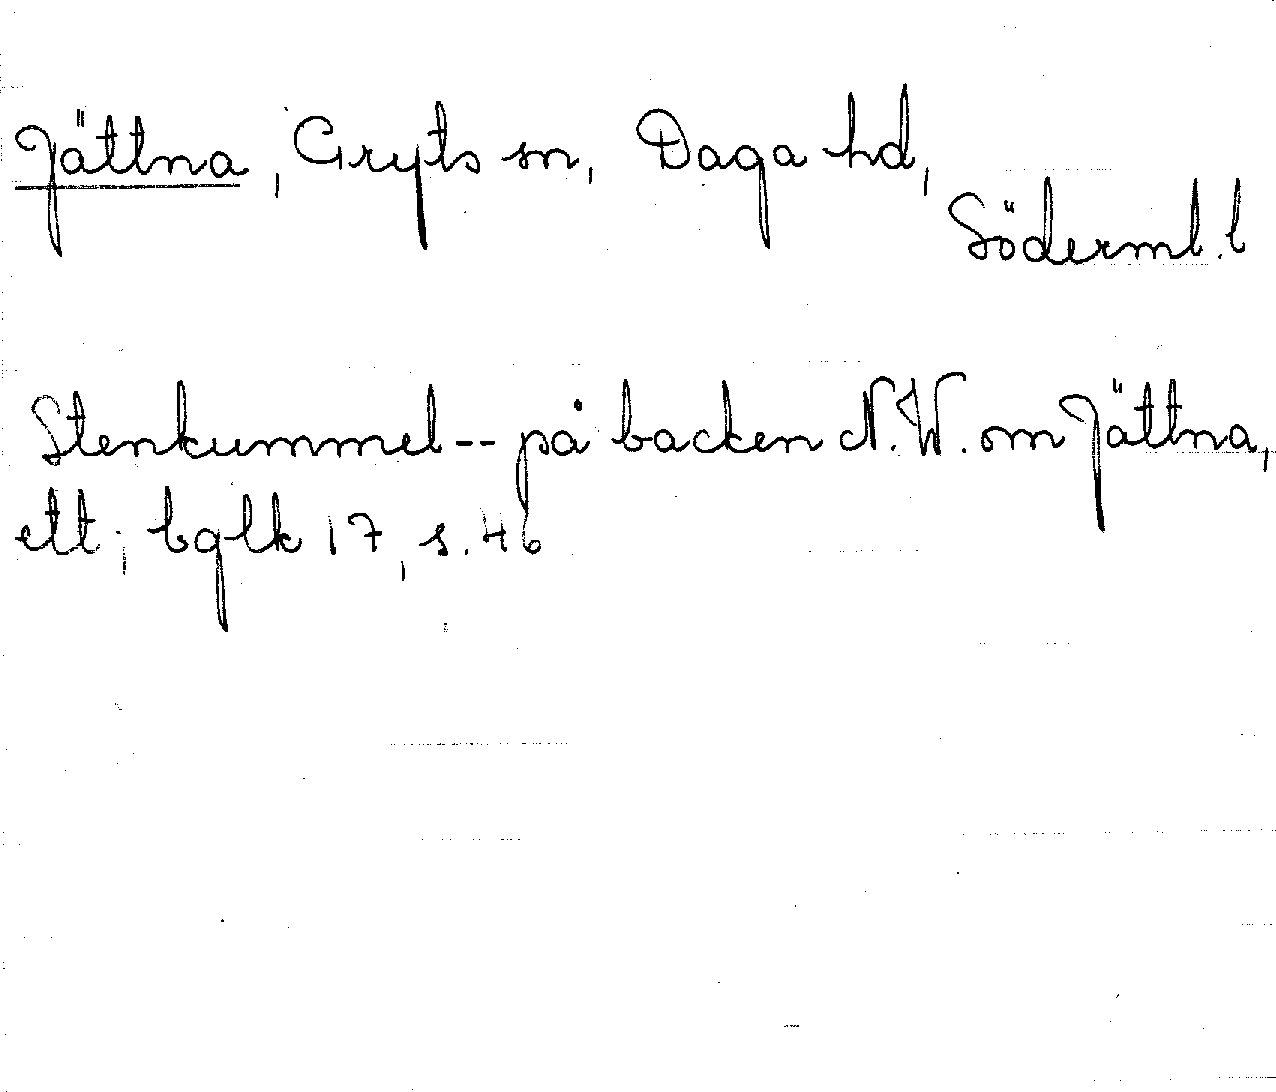 Jättna, Gryts sn, Daga hd,
Söderml. l
Stenkummel -- på backen N.W. om Jättna,
ett; bglk 17, s. 46